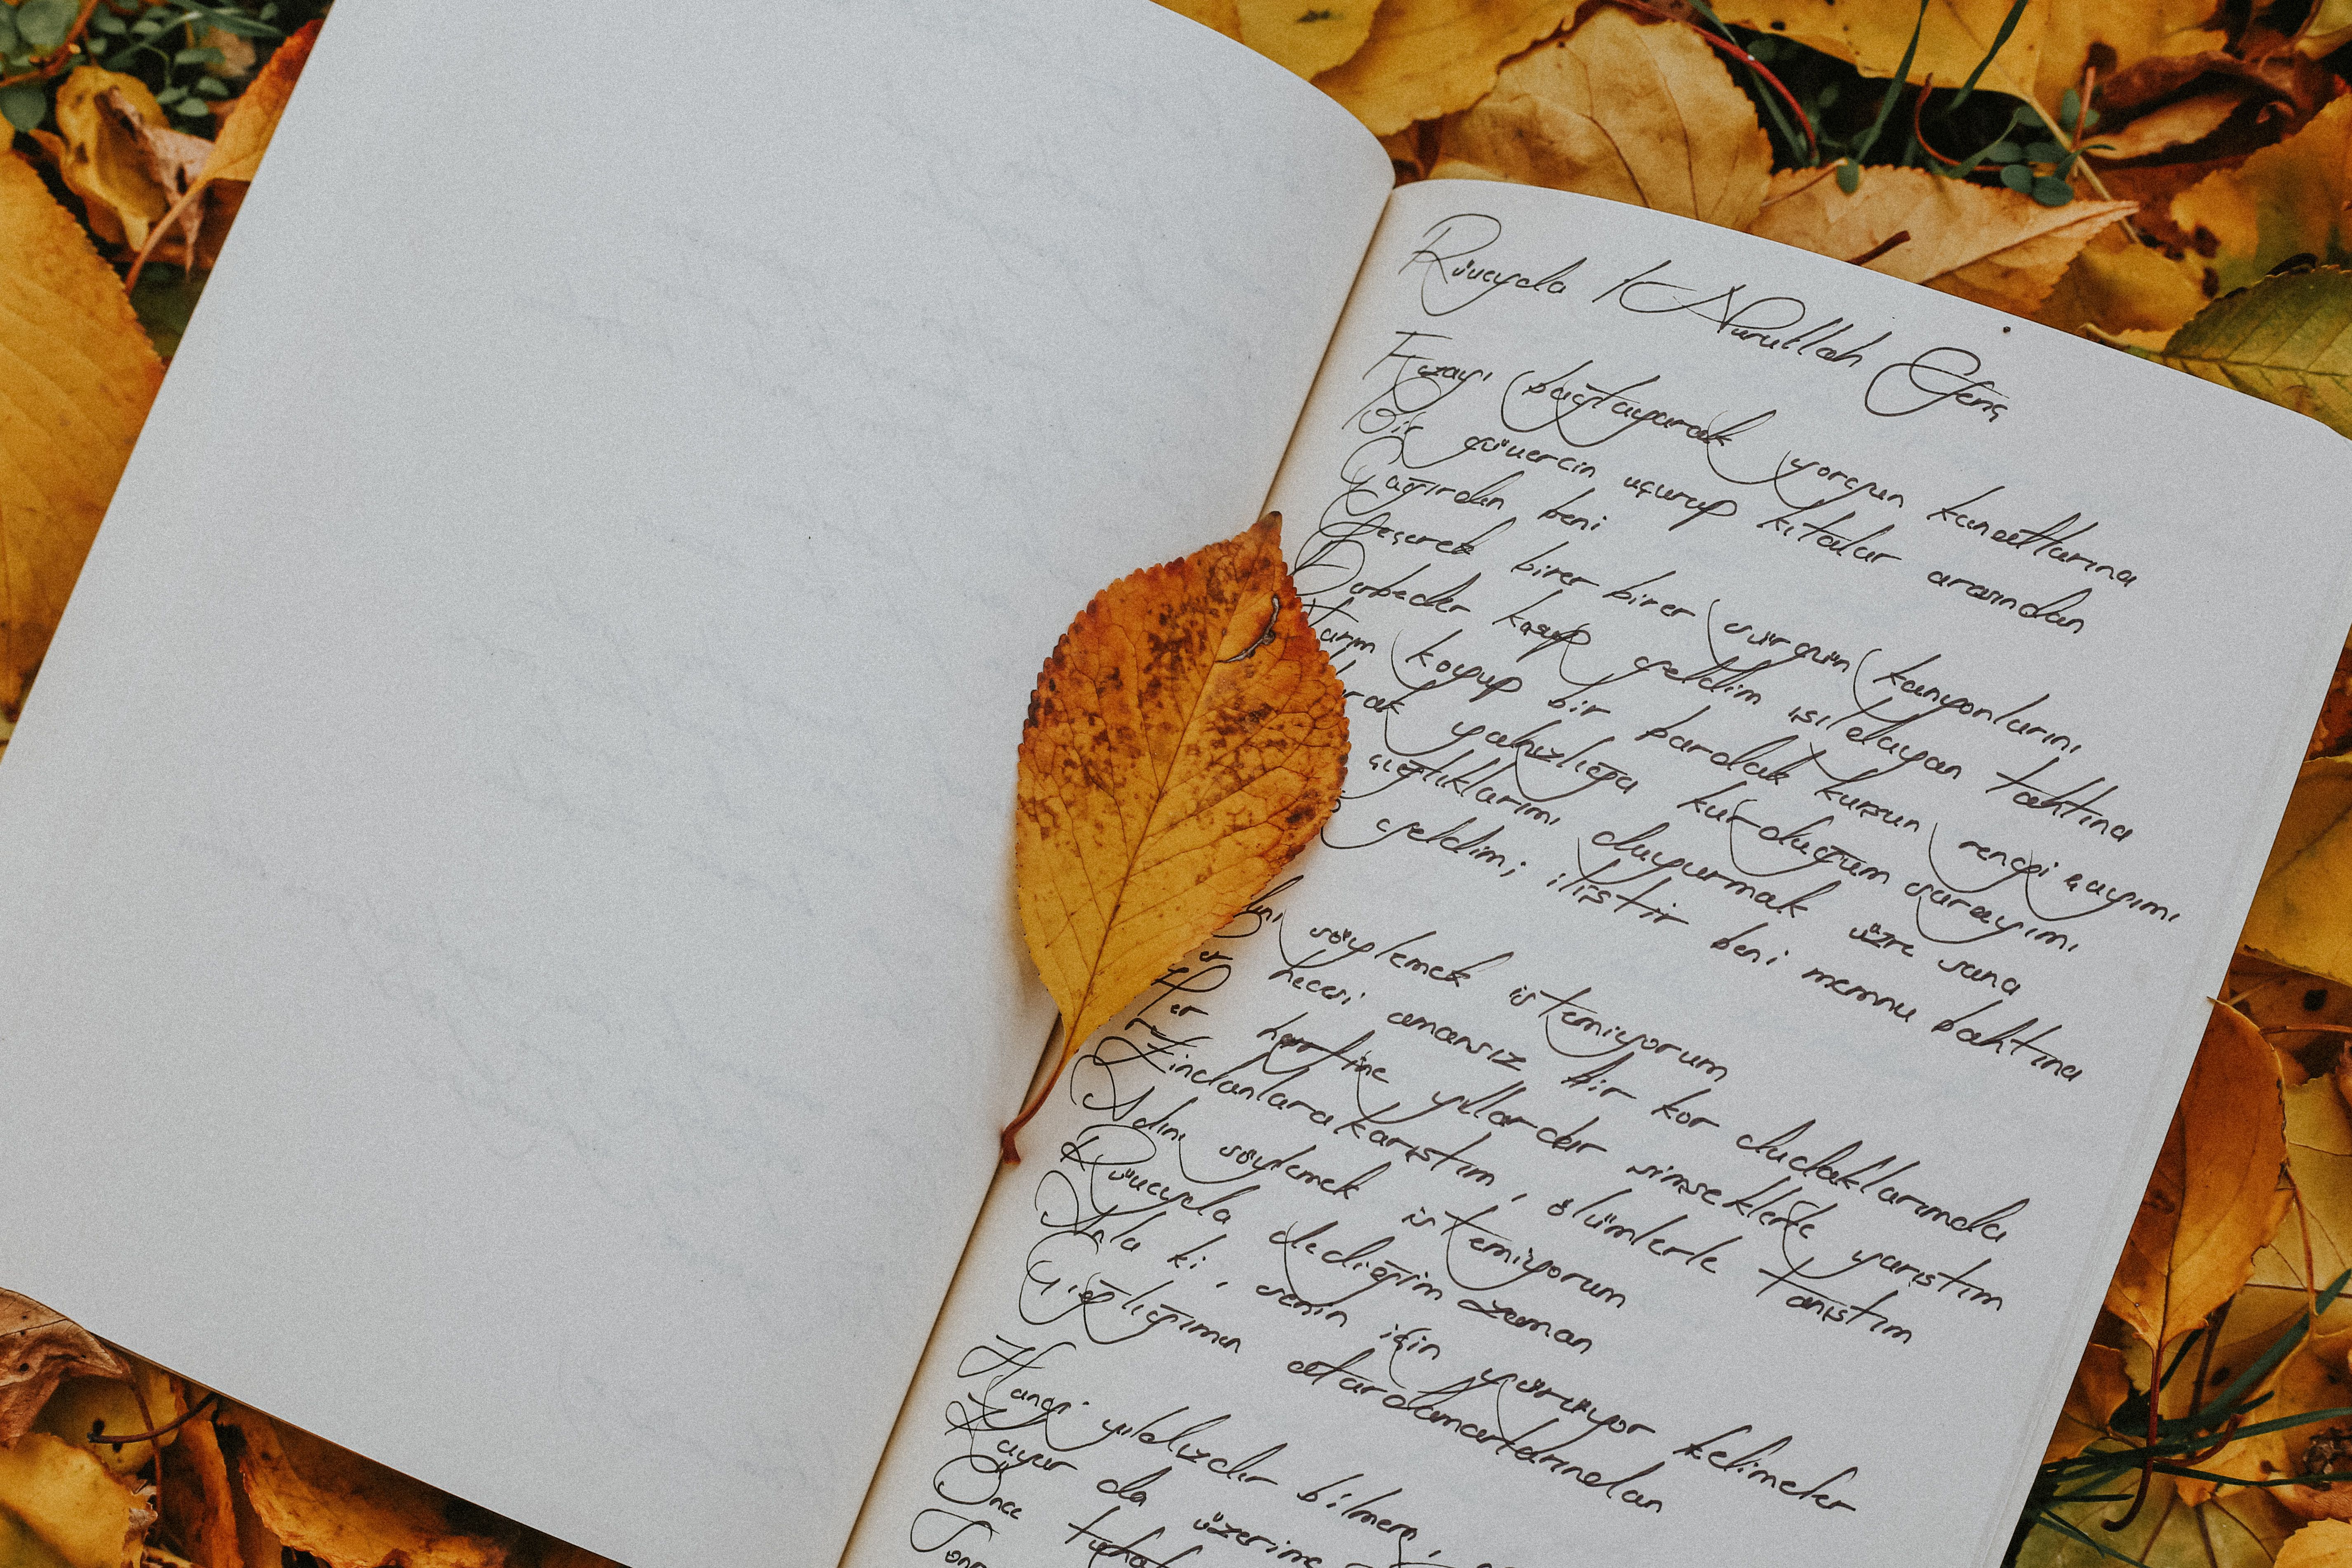 Rüveyda / Nurullah Genç
Fezayı bağlayarak yorgun kanatlarına
Bir güvercin uçurup kıtalar arasından
Çağırdın beni
Geçerek birer birer sürgün kanyonlarını
Derbeder koşup geldim ışıldayan tahtına
Yarım koyup bir bardak kurşun rengi çayımı
yalnızlığa kurduğum sarayımı
çığlıklarımı duyurmak üzre sana
geldim; iliştir beni memnu bahtına
söylemek istemiyorum
hecesi amansız bir kor dudaklarımda
Her harfine yıllardır şimşeklerle yarıştım
Zindanlara karıştım, ölümlerle tanıştım
Adını söylemek istemiyorum
Rüveyda dediğim zaman
Anla ki, senin için yürüyor kelimeler
Çığlığımın atardamarlarından
Hangi yıldızdır bilmem,
Kayar da üzerine
Önce